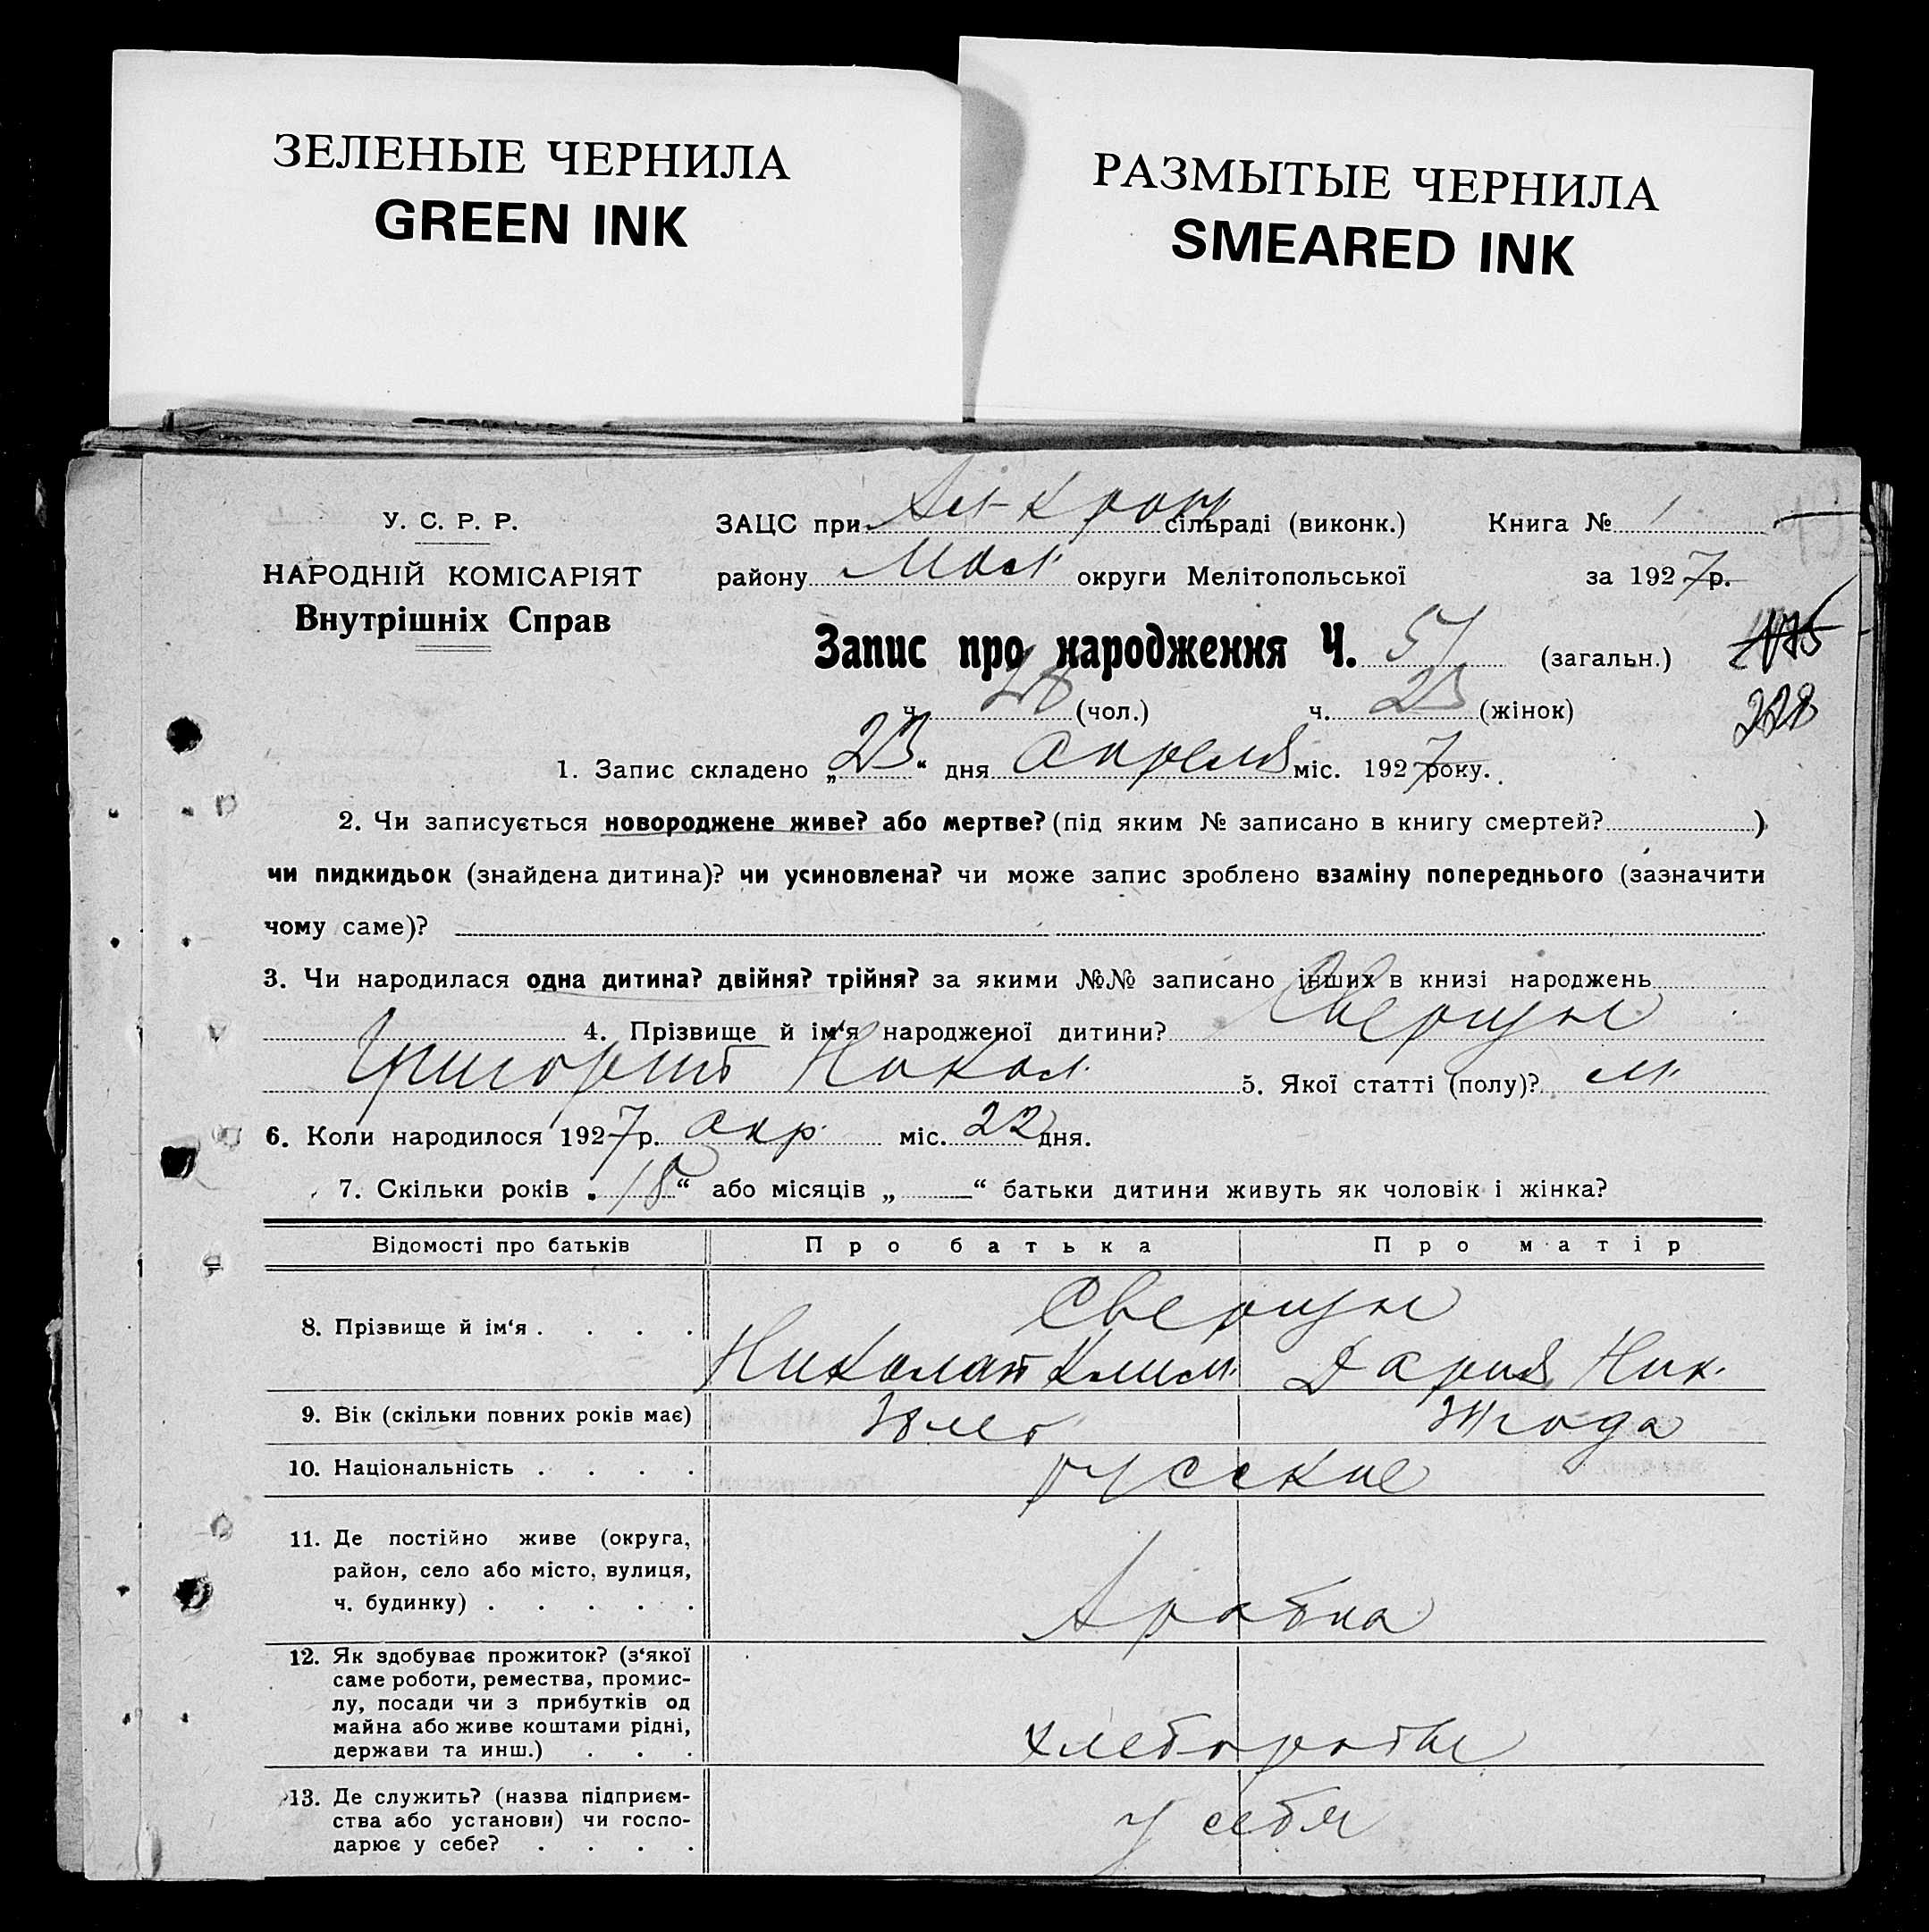 ЗЕЛЕНЫЕ ЧЕРНИЛА
GREEN INK
РАЗМЫТЫЕ ЧЕРНИЛА
SMEARED INK
У. С. Р. Р.
НАРОДНІЙ КОМІСАРІЯТ
Внутрішніх Справ
ЗАЦС при сільраді (виконк.) Книга № 1
району округи Мелітопольської за 1927 р.
Запис про народження Ч. 51 (загальн.)
228
ч. 28 (чол.) ч. 23 (жінок)
1. Запис складено „23“ дня апреля міс. 1927 року.
2. Чи записується новороджене живе? або мертве? (під яким № записано в книгу смертей? )
чи пидкидьок (знайдена дитина)? чи усиновлена? чи може запис зроблено взаміну попереднього (зазначити
чому саме)?
3. Чи народилася одна дитина? двійня? трійня? за якими №№ записано інших в книзі народжень
4. Прізвище й ім‘я народженої дитини?
Григорий 5. Якої статті (полу)? м.
6. Коли народилося 1927 р. апр. міс. 22 дня.
7. Скільки років „18“ або місяців „ “ батьки дитини живуть як чоловік і жінка?
Відомості про батьків Про батька Про матір
8. Прізвище й ім‘я . . . .
Николай Клим. Дария Ник.
9. Вік (скільки повних років має) лет года
10. Національність . . . . русские
11. Де постійно живе (округа,
район, село або місто, вулиця,
ч. будинку) . . . . .
12. Як здобуває прожиток? (з‘якої
саме роботи, ремества, промис-
лу, посади чи з прибутків од
майна або живе коштами рідні,
держави та инш.) . . . хлеборобы
13. Де служить? (назва підприєм-
ства або установи) чи госпо-
дарює у себе? . . . . у себя